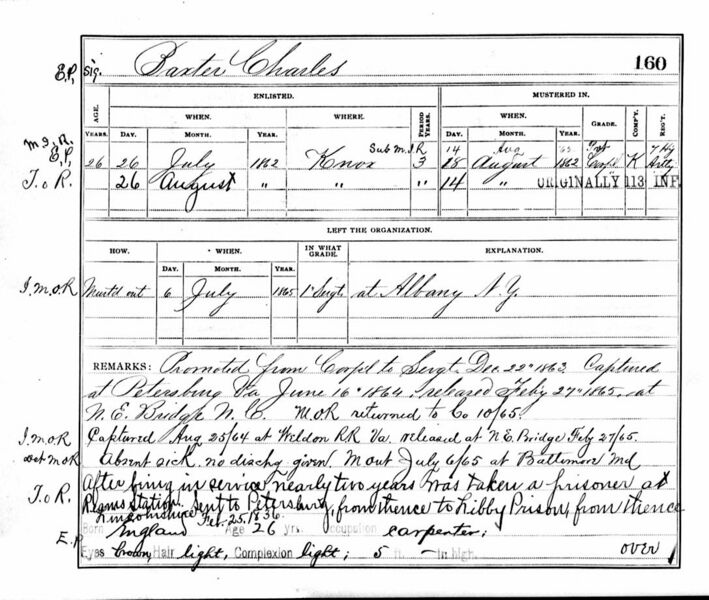 E.P, Sig. Baxter Charles 160
AGE. ENLISTED. MUSTERED IN.
WHEN. WHERE. PERIOD YEARS. WHEN. GRADE. COMP'Y. REG'T.
YEARS. DAY. MONTH. YEAR. DAY. MONTH. YEAR.
M.I.R. Sub M.I.R 14 Aug '62 7 Hy
E.P, 26 26 July 1862 Knox 3 28 August 1862 Corpl K Arty
T. o R. 26 August " " 14 " ORIGINALLY 113 INF.
LEFT THE ORGANIZATION.
HOW. WHEN. IN WHAT GRADE. EXPLANATION.
DAY. MONTH. YEAR.
I.M.O.R Must'd out 6 July 1865 1" Sergt at Albany N.Y.
REMARKS: Promoted from Corp'l to Sergt. Dec. 22" 1863. Captured
at Petersburg Va June 16" 1864, released Feby 27" 1865. at
N.E. Bridge N.C. M.O.R returned to Co 10/65.
I.M.O.R Captured Aug 25/64 at Weldon RR Va. released at N.E. Bridge Feby 27/65.
M.O.R Absent sick. no dischg given. M out July 6/65 at Baltimore Md
T. o R. After being in service nearly two years was taken a prisoner at
Reams Station. Sent to Petersburg, from thence to Libby Prison, from thence
Feb. 25. 1836.
E.P Born England Age 26 yrs. Occupation carpenter;
Eyes brown, Hair light, Complexion light; 5 ft. – in high. over